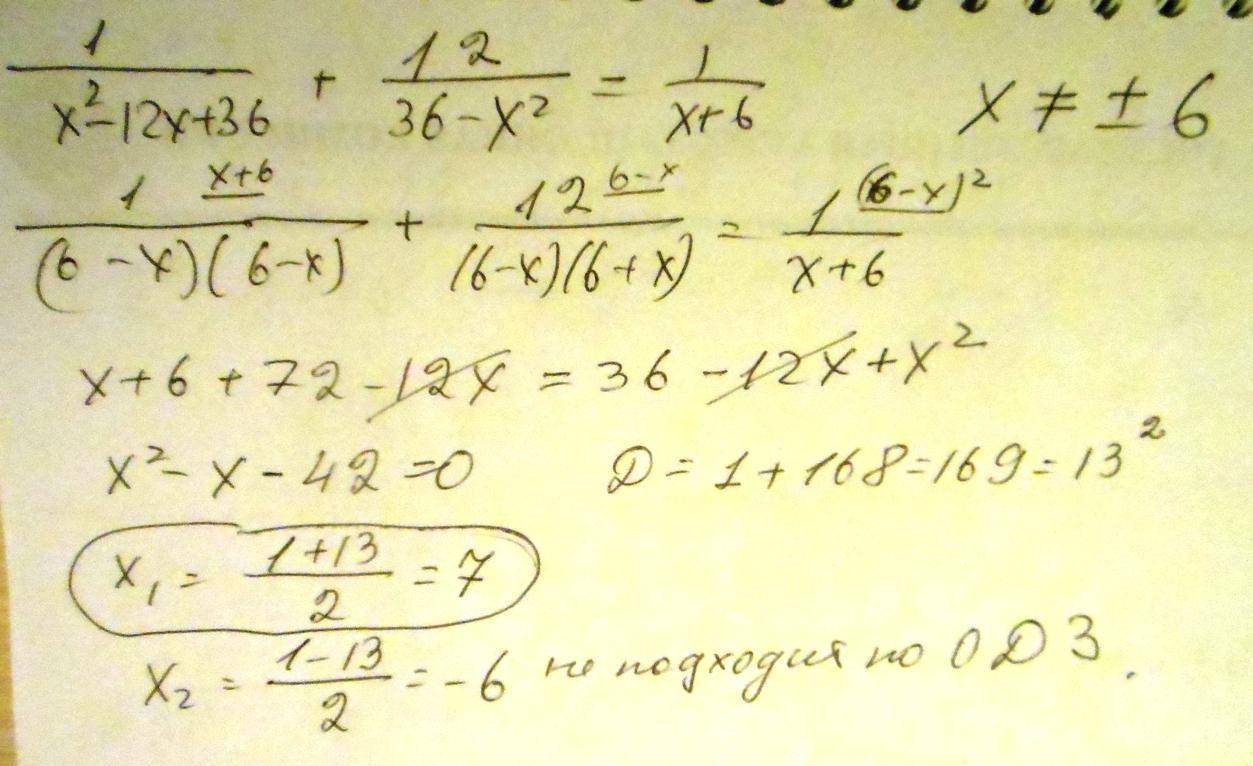 1/(x²-12x+36) + 12/(36-x²) = 1/(x+6) x ≠ ± 6
1 x+6/((6-x)(6-x)) + 12 6-x/((6-x)(6+x)) = 1 (6-x)²/(x+6)
x+6+72-12x = 36-12x+x²
x²-x-42=0 D=1+168=169=13²
x₁ = (1+13)/2 = 7
x₂ = (1-13)/2 = -6 не подходит по ОДЗ.